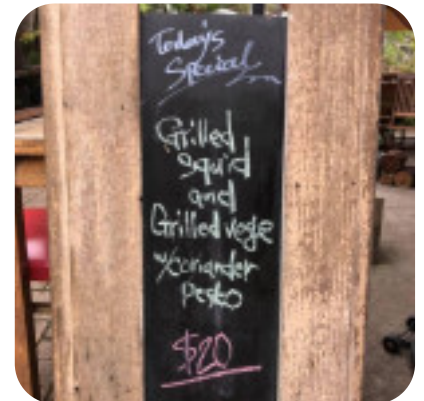 Today's
Special
Grilled
squid
and
Grilled vege
w/coriander
Pesto
$20